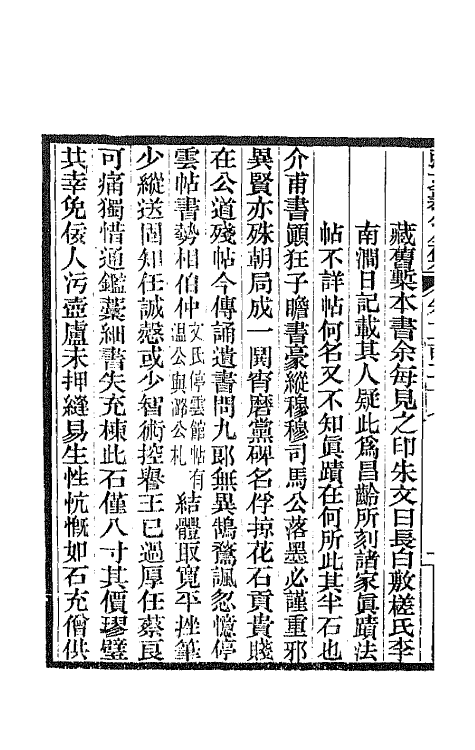 藏舊槧本書余每見之印朱文曰長白敷槎氏李
南澗日記載其人疑此爲昌齡所刻諸家眞蹟法
帖不詳帖何名又不知眞蹟在何所此其半石也
介甫書顚狂子瞻書豪縱穆穆司馬公落墨必謹重邪
異賢亦殊朝局成一鬨宵磨黨碑名俘掠花石貢貴賤
在公道殘帖今傳誦遺書問九郎無異鵠鶩諷忽憶停
雲帖書勢相伯仲文氏停雲館帖有溫公與潞公札結體取寬平挫筆
少縱送固知任誠慤或少智術控譽王已過厚任蔡良
可痛獨惜通鑑藁細書失充棟此石僅八寸其價璆璧
共幸免倿人污壺盧未押縫易生性忼慨如石充僧供